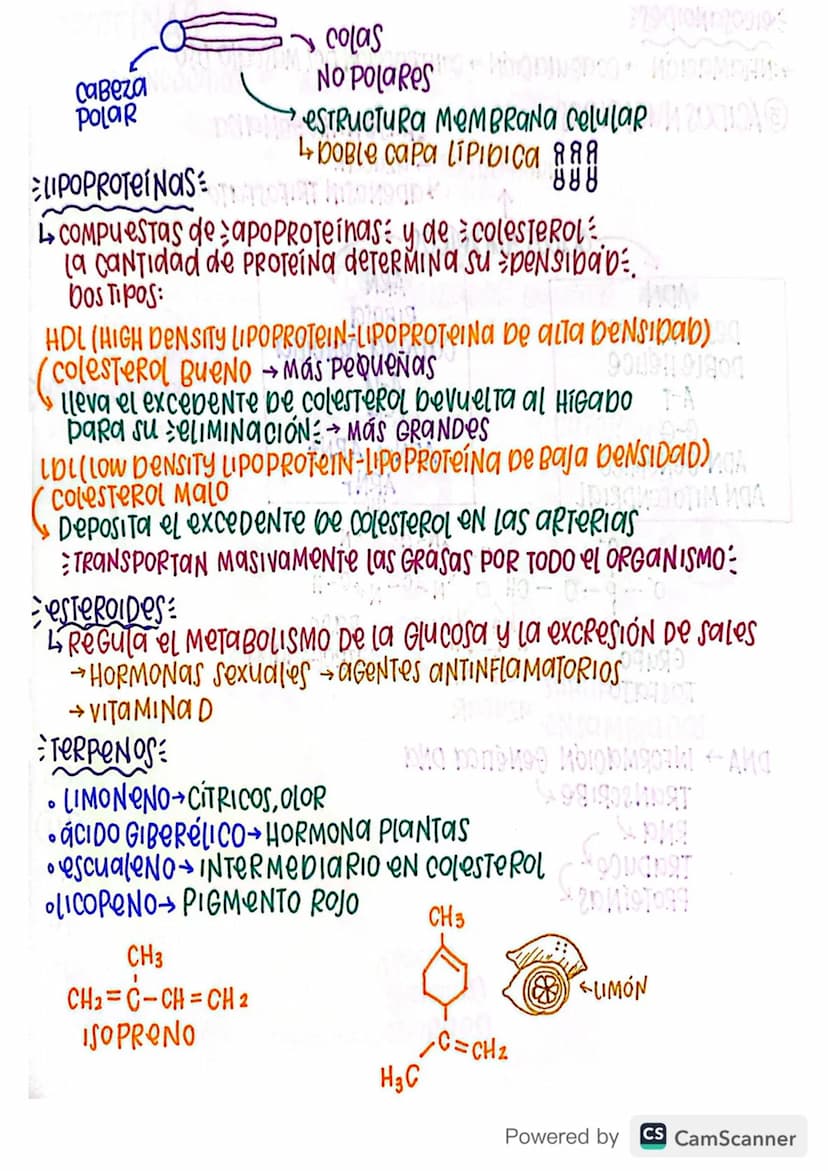 COLAS
NO POLARES
CABEZA
POLAR
ESTRUCTURA MEMBRANA CELULAR
DOBLE CAPA LÍPIDICA
LIPOPROTEÍNAS
COMPUESTAS DE APOPROTEÍNAS Y DE COLESTEROL.
LA CANTIDAD DE PROTEÍNA DETERMINA SU DENSIDAD.
DOS TIPOS:
HDL (HIGH DENSITY LIPOPROTEIN-LIPOPROTEINA DE ALTA DENSIDAD)
COLESTEROL BUENO → MÁS PEQUEÑAS
LLEVA EL EXCEDENTE DE COLESTEROL DEVUELTA AL HÍGADO
PARA SU ELIMINACIÓN → MÁS GRANDES
LDL (LOW DENSITY LIPOPROTEIN-LIPOPROTEÍNA DE BAJA DENSIDAD)
COLESTEROL MALO
DEPOSITA EL EXCEDENTE DE COLESTEROL EN LAS ARTERIAS
TRANSPORTAN MASIVAMENTE LAS GRASAS POR TODO EL ORGANISMO
ESTEROIDES
REGULA EL METABOLISMO DE LA GLUCOSA Y LA EXCRESIÓN DE SALES
→ HORMONAS SEXUALES → AGENTES ANTINFLAMATORIOS
→ VITAMINA D
TERPENOS
• LIMONENO → CÍTRICOS, OLOR
• ÁCIDO GIBERÉLICO → HORMONA PLANTAS
• ESCUALENO → INTERMEDIARIO EN COLESTEROL
• LICOPENO → PIGMENTO ROJO
CH3
CH2=C-CH=CH2
ISOPRENO
CH3
C=CH2
H3C
←LIMÓN
Powered by CS CamScanner